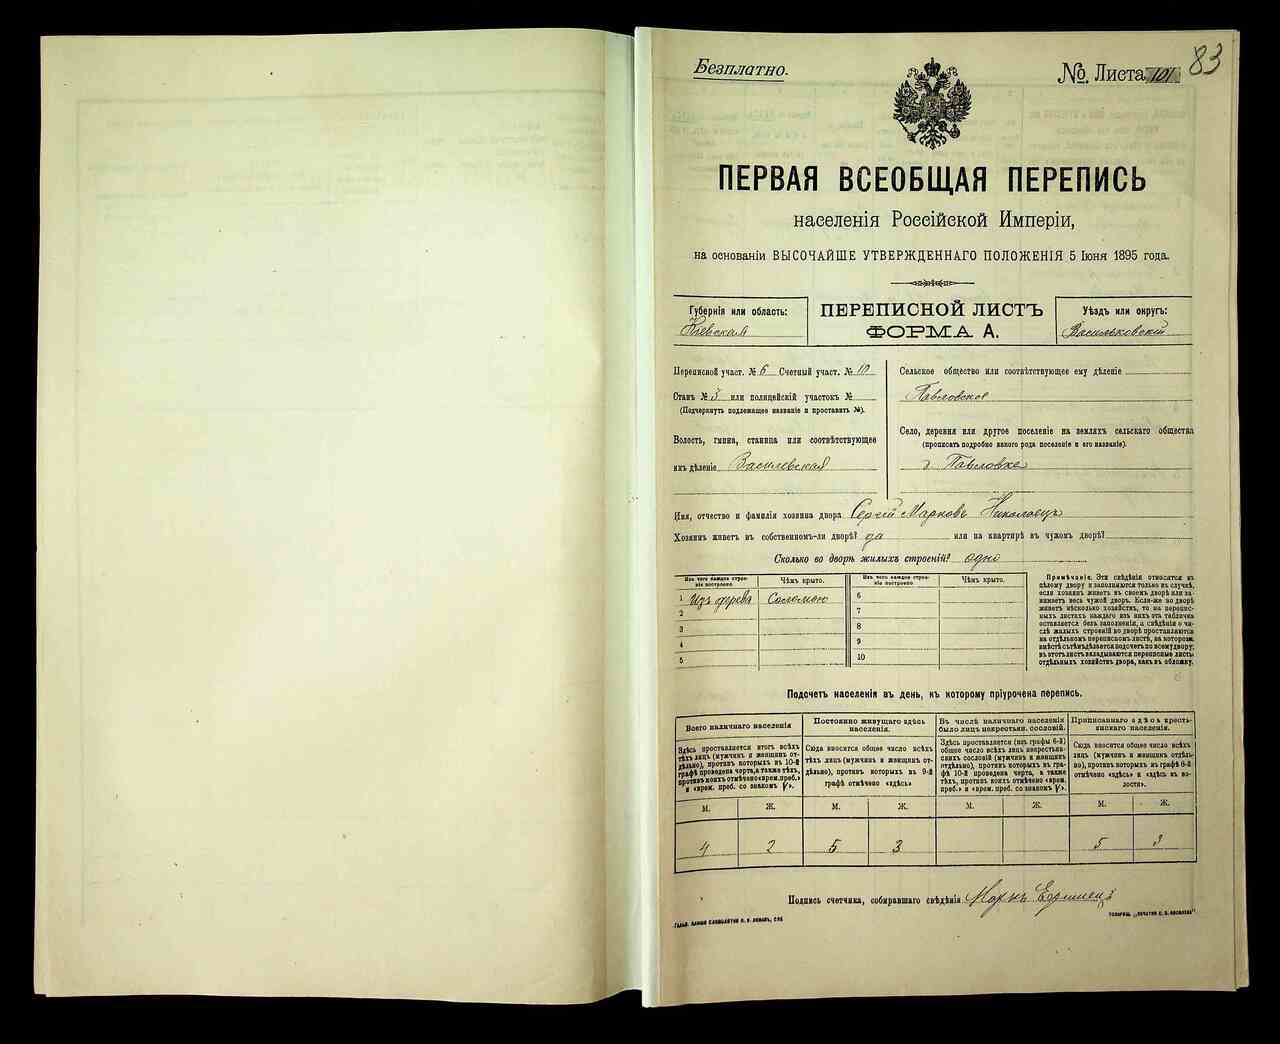 Безплатно.
№. Листа 101
83
ПЕРВАЯ ВСЕОБЩАЯ ПЕРЕПИСЬ
населенія Россійской Имперіи,
на основаніи ВЫСОЧАЙШЕ УТВЕРЖДЕННАГО ПОЛОЖЕНІЯ 5 Іюня 1895 года.
Губернія или область:
Кіевская
ПЕРЕПИСНОЙ ЛИСТЪ
ФОРМА А.
Уѣздъ или округъ:
Васильковскій
Переписной участ. № 6 Счетный участ. № 10
Станъ № 3 или полицейскій участокъ №
(Подчеркнуть подлежащее названіе и проставить №).
Волость, гмина, станица или соотвѣтствующее
имъ дѣленіе Василевская
Сельское общество или соотвѣтствующее ему дѣленіе
Павловское
Село, деревня или другое поселеніе на земляхъ сельскаго общества
(прописать подробно какого рода поселеніе и его названіе).
д. Павловке
Имя, отчество и фамилія хозяина двора Сергій Марковъ Николаецъ
Хозяинъ живетъ въ собственномъ-ли дворѣ? да или на квартирѣ въ чужомъ дворѣ?
Сколько во дворѣ жилыхъ строеній? одно
Изъ чего каждое строеніе построено
Чѣмъ крыто.
Изъ чего каждое строеніе построено
Чѣмъ крыто.
1 Изъ дерева Соломою
2
3
4
5
6
7
8
9
10
Примѣчаніе. Эти свѣдѣнія относятся къ
цѣлому двору и заполняются только въ случаѣ,
если хозяинъ живетъ въ своемъ дворѣ или за-
нимаетъ весь чужой дворъ. Если-же во дворѣ
живетъ нѣсколько хозяйствъ, то на перепис-
ныхъ листахъ каждаго изъ нихъ эта табличка
оставляется безъ заполненія, а свѣдѣніе о чи-
слѣ жилыхъ строеній во дворѣ проставляются
на отдѣльномъ переписномъ листѣ, на которомъ
вмѣстѣ съ тѣмъ дѣлается подсчетъ по всему двору;
въ этотъ листъ вкладываются переписные листы
отдѣльныхъ хозяйствъ двора, какъ въ обложку.
Подсчетъ населенія въ день, къ которому пріурочена перепись.
Всего наличнаго населенія
Здѣсь проставляется итогъ всѣхъ
тѣхъ лицъ (мужчинъ и женщинъ от-
дѣльно), противъ которыхъ въ 10-й
графѣ проведена черта, а также тѣхъ,
противъ коихъ отмѣчено «врем. преб.»
и «врем. преб. со знакомъ V».
Постоянно живущаго здѣсь
населенія.
Сюда вносится общее число всѣхъ
тѣхъ лицъ (мужчинъ и женщинъ от-
дѣльно), противъ которыхъ въ 9-й
графѣ отмѣчено «здѣсь»
Въ числѣ наличнаго населенія
было лицъ некрестьян. сословій.
Здѣсь проставляется (изъ графы 6-й)
общее число всѣхъ лицъ некрестьян-
скихъ сословій (мужчинъ и женщинъ
отдѣльно), противъ которыхъ въ гра-
фѣ 10-й проведена черта, а также
тѣхъ, противъ коихъ отмѣчено «врем.
преб.» и «врем. преб. со знакомъ V».
Приписаннаго здѣсь кресть-
янскаго населенія.
Сюда вносится общее число всѣхъ
лицъ (мужчинъ и женщинъ отдѣль-
но), противъ которыхъ въ графѣ 8-й
отмѣчено «здѣсь» и «здѣсь въ во-
лости».
М. Ж. М. Ж. М. Ж. М. Ж.
4 2 5 3 5 3
Подпись счетчика, собиравшаго свѣдѣнія Маркъ